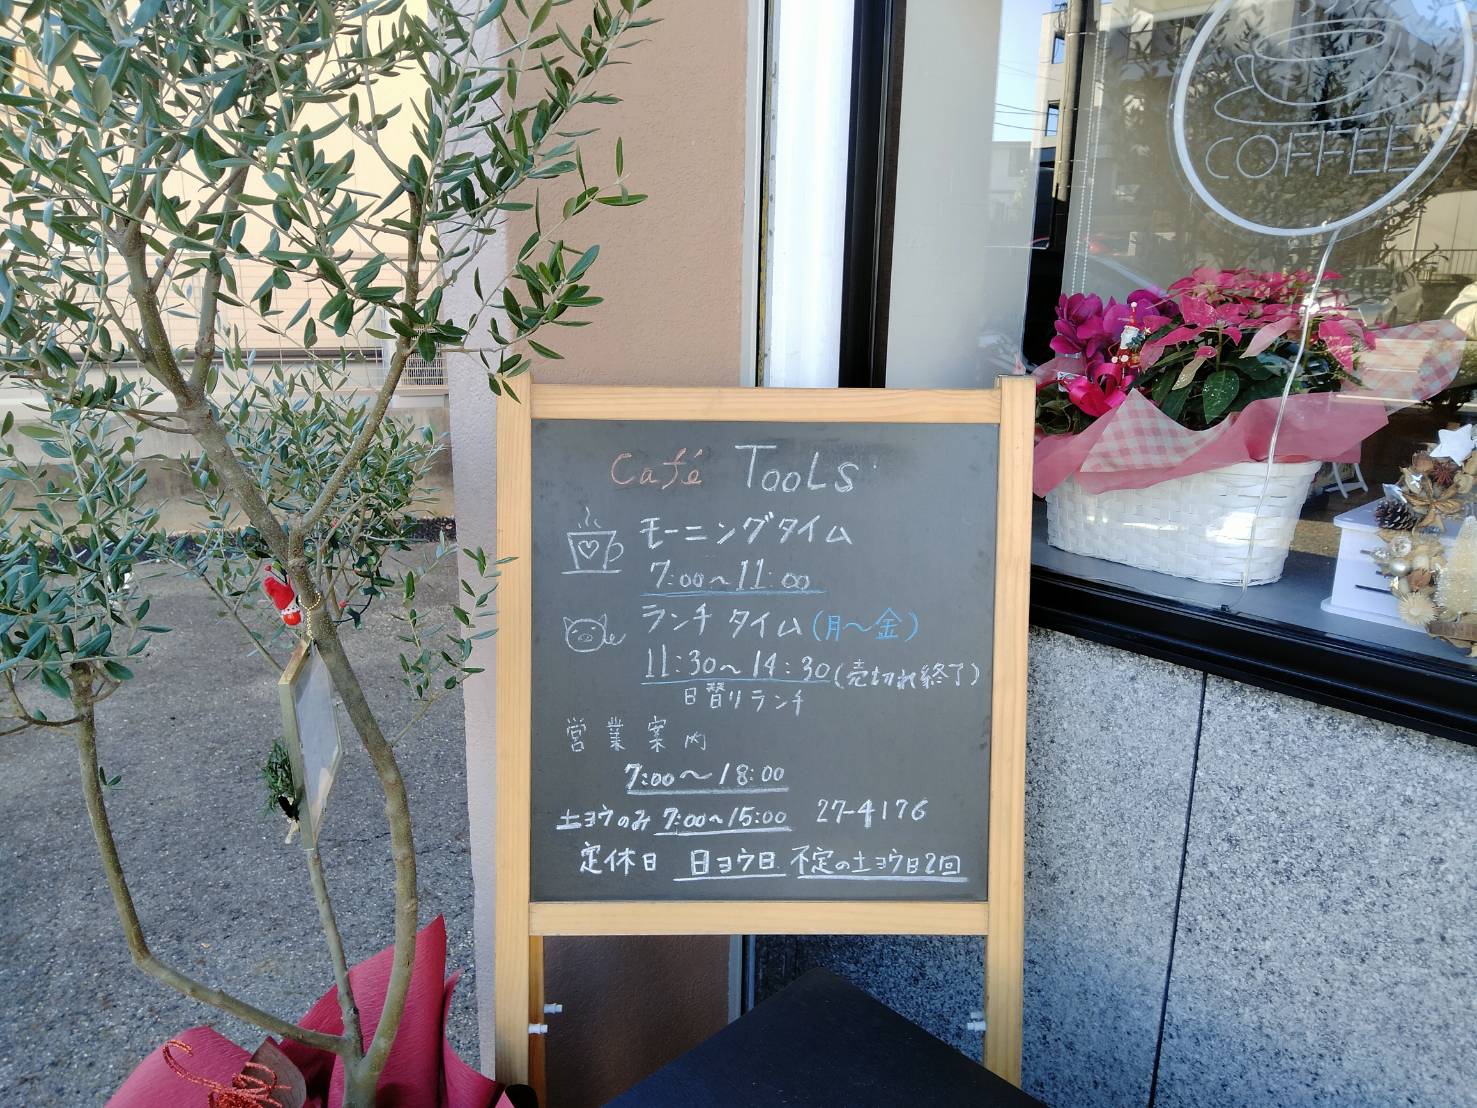 COFFEE
Café TooLs
モーニングタイム
7:00～11:00
ランチタイム(月～金)
11:30～14:30(売切れ終了)
日替りランチ
営業案内
7:00～18:00
土ヨウのみ 7:00～15:00 27-4176
定休日 日ヨウ日 不定の土ヨウ日2回